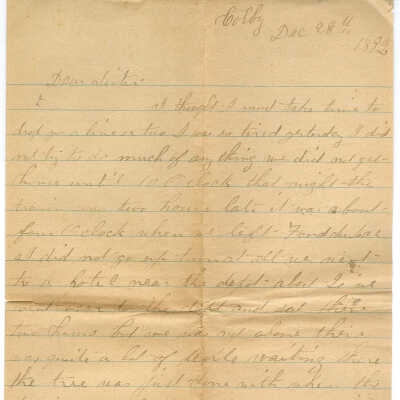 Colby
Dec 28th
1892
Dear Sister
I thought I must take time to
drop you a line or two I was so tired yesterday I did
not try to do much of anything we did not get
home until 10 O clock that night the
train was two hours late it was about
four O clock when we left Fond du Lac
I did not go up town at all we went
to a hotel near the depot about
went over to the depot and sat there
two hours but we was not alone there
was quite a lot of people waiting there
the tree was just done with when the